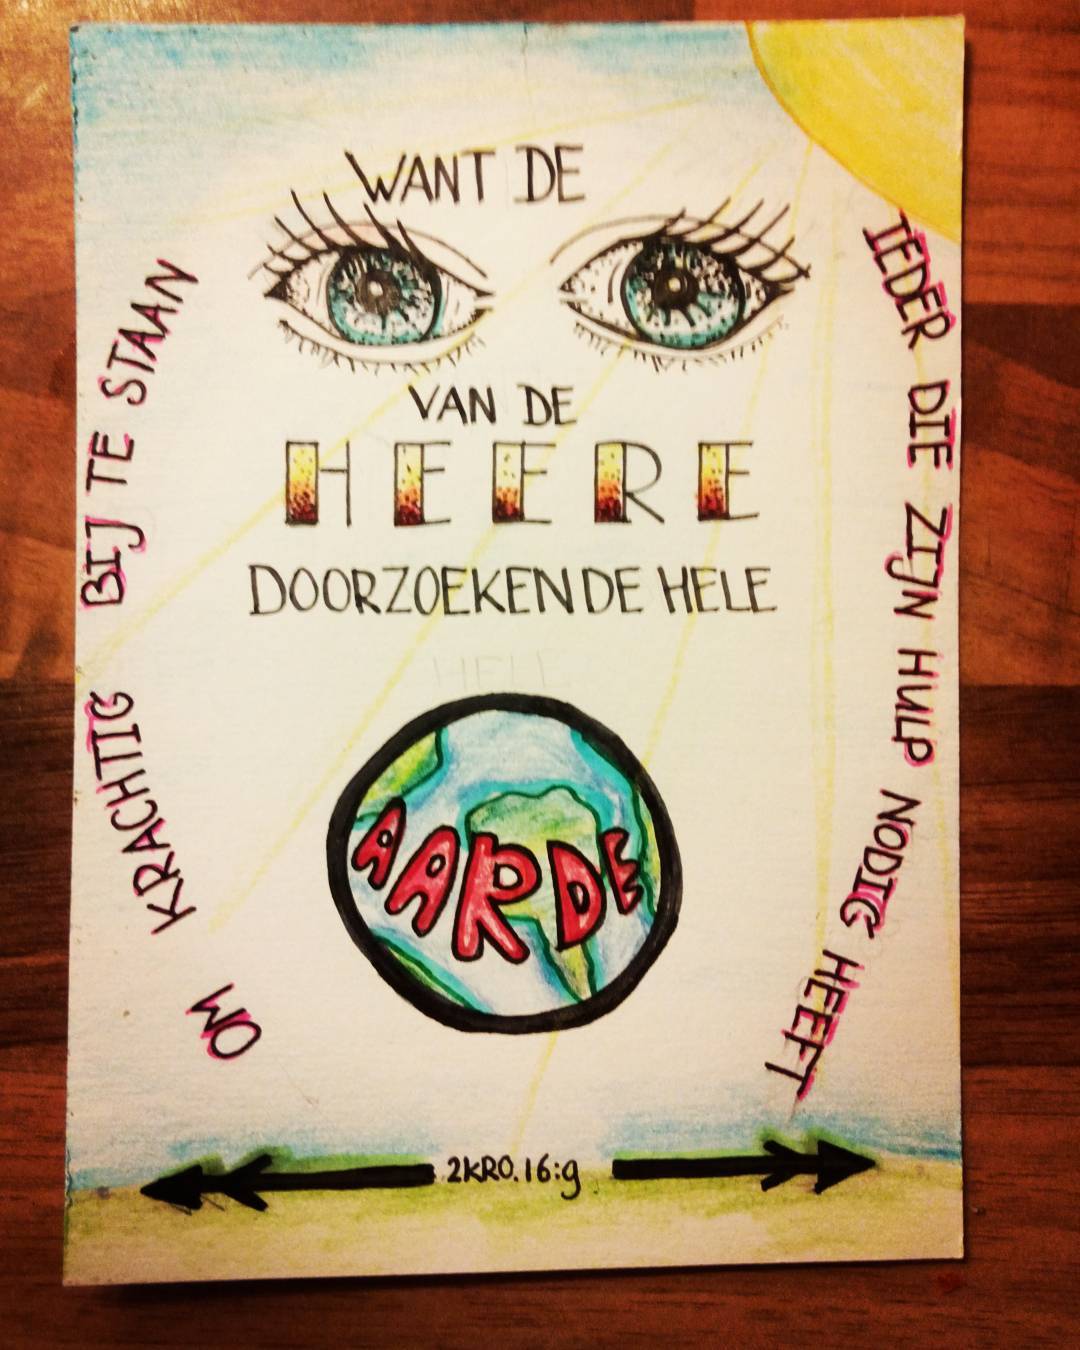 WANT DE
VAN DE
HEERE
DOORZOEKEN DE HELE
HELE
AARDE
OM KRACHTIG BIJ TE STAAN
IEDER DIE ZIJN HULP NODIG HEEFT
2KRO.16:9